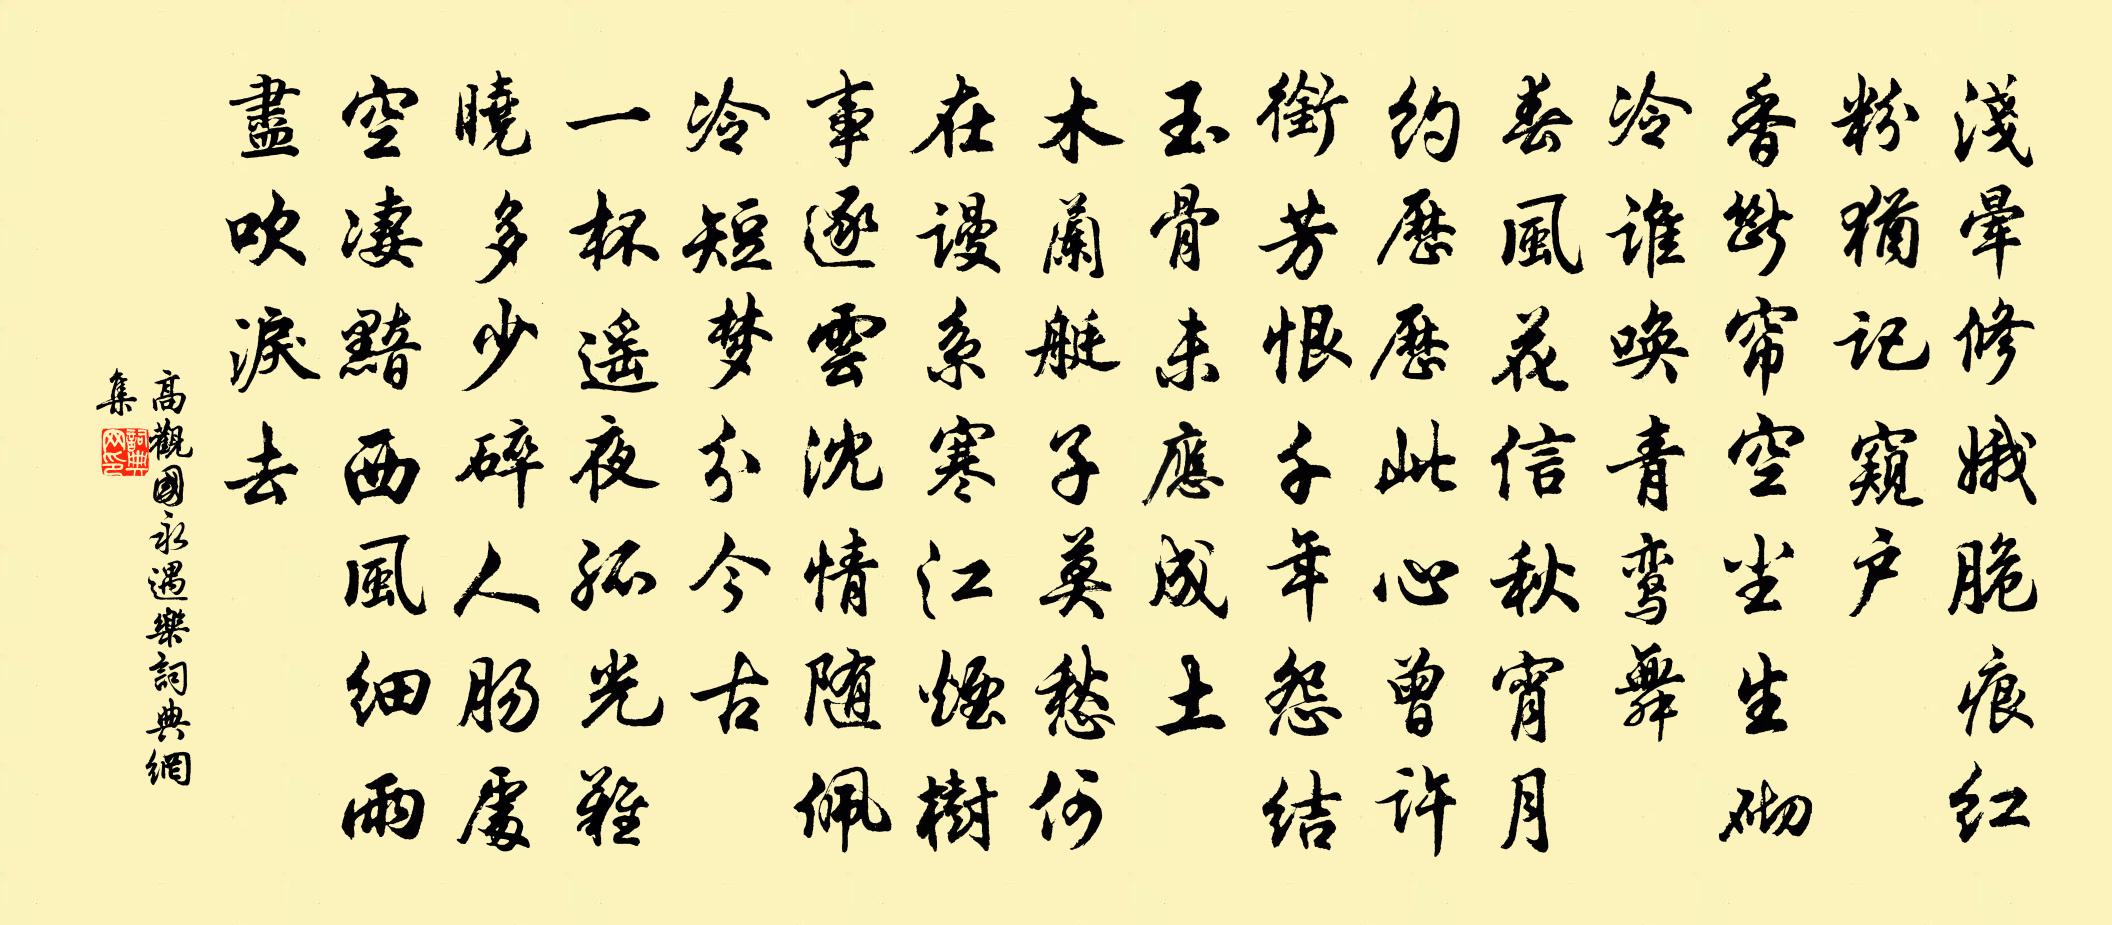 淺暈修娥脆痕紅
粉猶記窺户
香斷帘空尘生砌
冷誰喚青鸾舞
春風花信秋宵月
約歷歷此心曾許
銜芳恨千年怨結
玉骨未應成土
木蘭艇子莫愁何
在謾系寒江煙樹
事逐雲沈情随佩
冷短梦分今古
一杯遥夜孤光難
曉多少碎人肠處
空凄黯西風細雨
盡吹淚去
高觀國永遇樂詞典網
集
詞典
网印